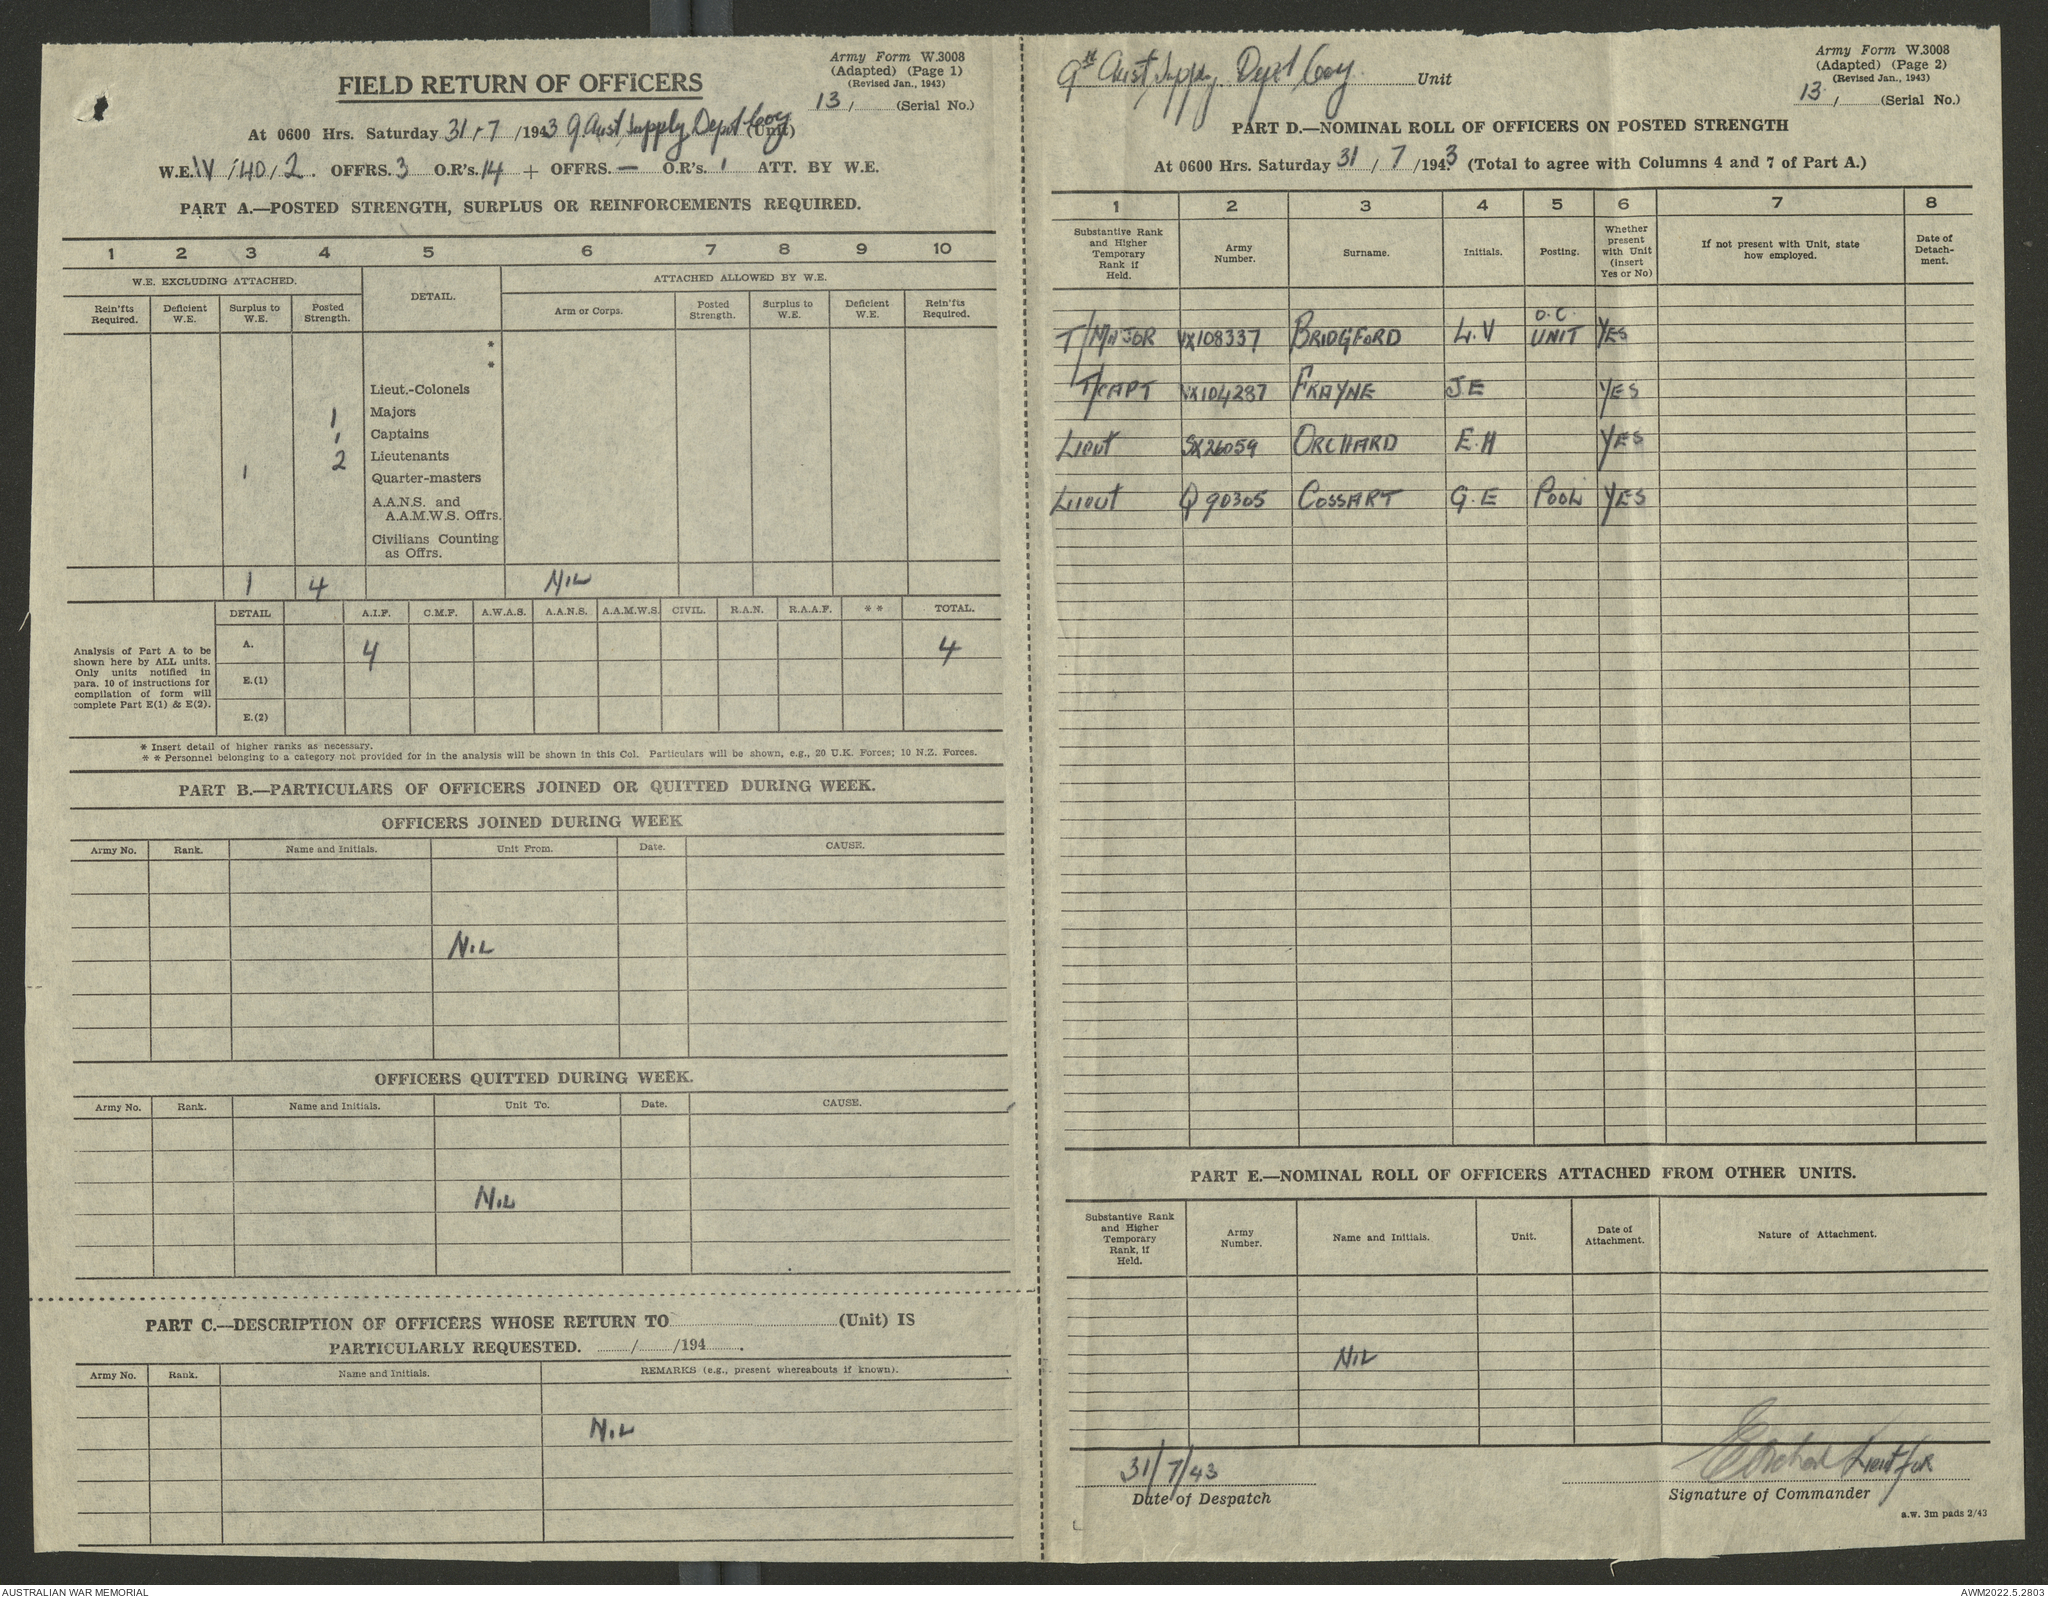 Army Form W.3008
(Adapted) (Page 1)
(Revised Jan., 1943)
13 / (Serial No.)
FIELD RETURN OF OFFICERS
At 0600 Hrs. Saturday 31 . 7 /1943 9 Aust Supply Depot Coy (Unit)
W.E. IV / 40 / 2. OFFRS. 3 O.R's. 14 + OFFRS. — O.R's. 1 ATT. BY W.E.
PART A.—POSTED STRENGTH, SURPLUS OR REINFORCEMENTS REQUIRED.
1 2 3 4 5 6 7 8 9 10
W.E. EXCLUDING ATTACHED. DETAIL. ATTACHED ALLOWED BY W.E.
Rein'fts Required. Deficient W.E. Surplus to W.E. Posted Strength. Arm or Corps. Posted Strength. Surplus to W.E. Deficient W.E. Rein'fts Required.
*
*
Lieut.-Colonels
1 Majors
1 Captains
2 Lieutenants
1 Quarter-masters
A.A.N.S. and
A.A.M.W.S. Offrs.
Civilians Counting
as Offrs.
1 4 NIL
DETAIL A.I.F. C.M.F. A.W.A.S. A.A.N.S. A.A.M.W.S. CIVIL. R.A.N. R.A.A.F. * * TOTAL.
Analysis of Part A to be
shown here by ALL units.
Only units notified in
para. 10 of instructions for
compilation of form will
complete Part E(1) & E(2).
A. 4 4
E.(1)
E.(2)
* Insert detail of higher ranks as necessary.
* * Personnel belonging to a category not provided for in the analysis will be shown in this Col. Particulars will be shown, e.g., 20 U.K. Forces; 10 N.Z. Forces.
PART B.—PARTICULARS OF OFFICERS JOINED OR QUITTED DURING WEEK.
OFFICERS JOINED DURING WEEK
Army No. Rank. Name and Initials. Unit From. Date. CAUSE.
NIL
OFFICERS QUITTED DURING WEEK.
Army No. Rank. Name and Initials. Unit To. Date. CAUSE.
NIL
PART C.—DESCRIPTION OF OFFICERS WHOSE RETURN TO (Unit) IS
PARTICULARLY REQUESTED. / /194 .
Army No. Rank. Name and Initials. REMARKS (e.g., present whereabouts if known).
NIL
9th Aust Supply Depot Coy. Unit
Army Form W.3008
(Adapted) (Page 2)
(Revised Jan., 1943)
13 / (Serial No.)
PART D.—NOMINAL ROLL OF OFFICERS ON POSTED STRENGTH
At 0600 Hrs. Saturday 31 / 7 /1943 (Total to agree with Columns 4 and 7 of Part A.)
1 2 3 4 5 6 7 8
Substantive Rank and Higher Temporary Rank if Held. Army Number. Surname. Initials. Posting. Whether present with Unit (insert Yes or No) If not present with Unit, state how employed. Date of Detach-ment.
O.C.
T/MAJOR VX108337 BRIDGFORD L.V UNIT YES
T/CAPT VX104287 FRAYNE J.E YES
LIEUT SX26059 ORCHARD E.H YES
LIEUT Q90305 COSSART G.E POOL YES
PART E.—NOMINAL ROLL OF OFFICERS ATTACHED FROM OTHER UNITS.
Substantive Rank and Higher Temporary Rank, if Held. Army Number. Name and Initials. Unit. Date of Attachment. Nature of Attachment.
NIL
31/7/43
Date of Despatch
EOrchard Lieut for
Signature of Commander
a.w. 3m pads 2/43
AUSTRALIAN WAR MEMORIAL
AWM2022.5.2803